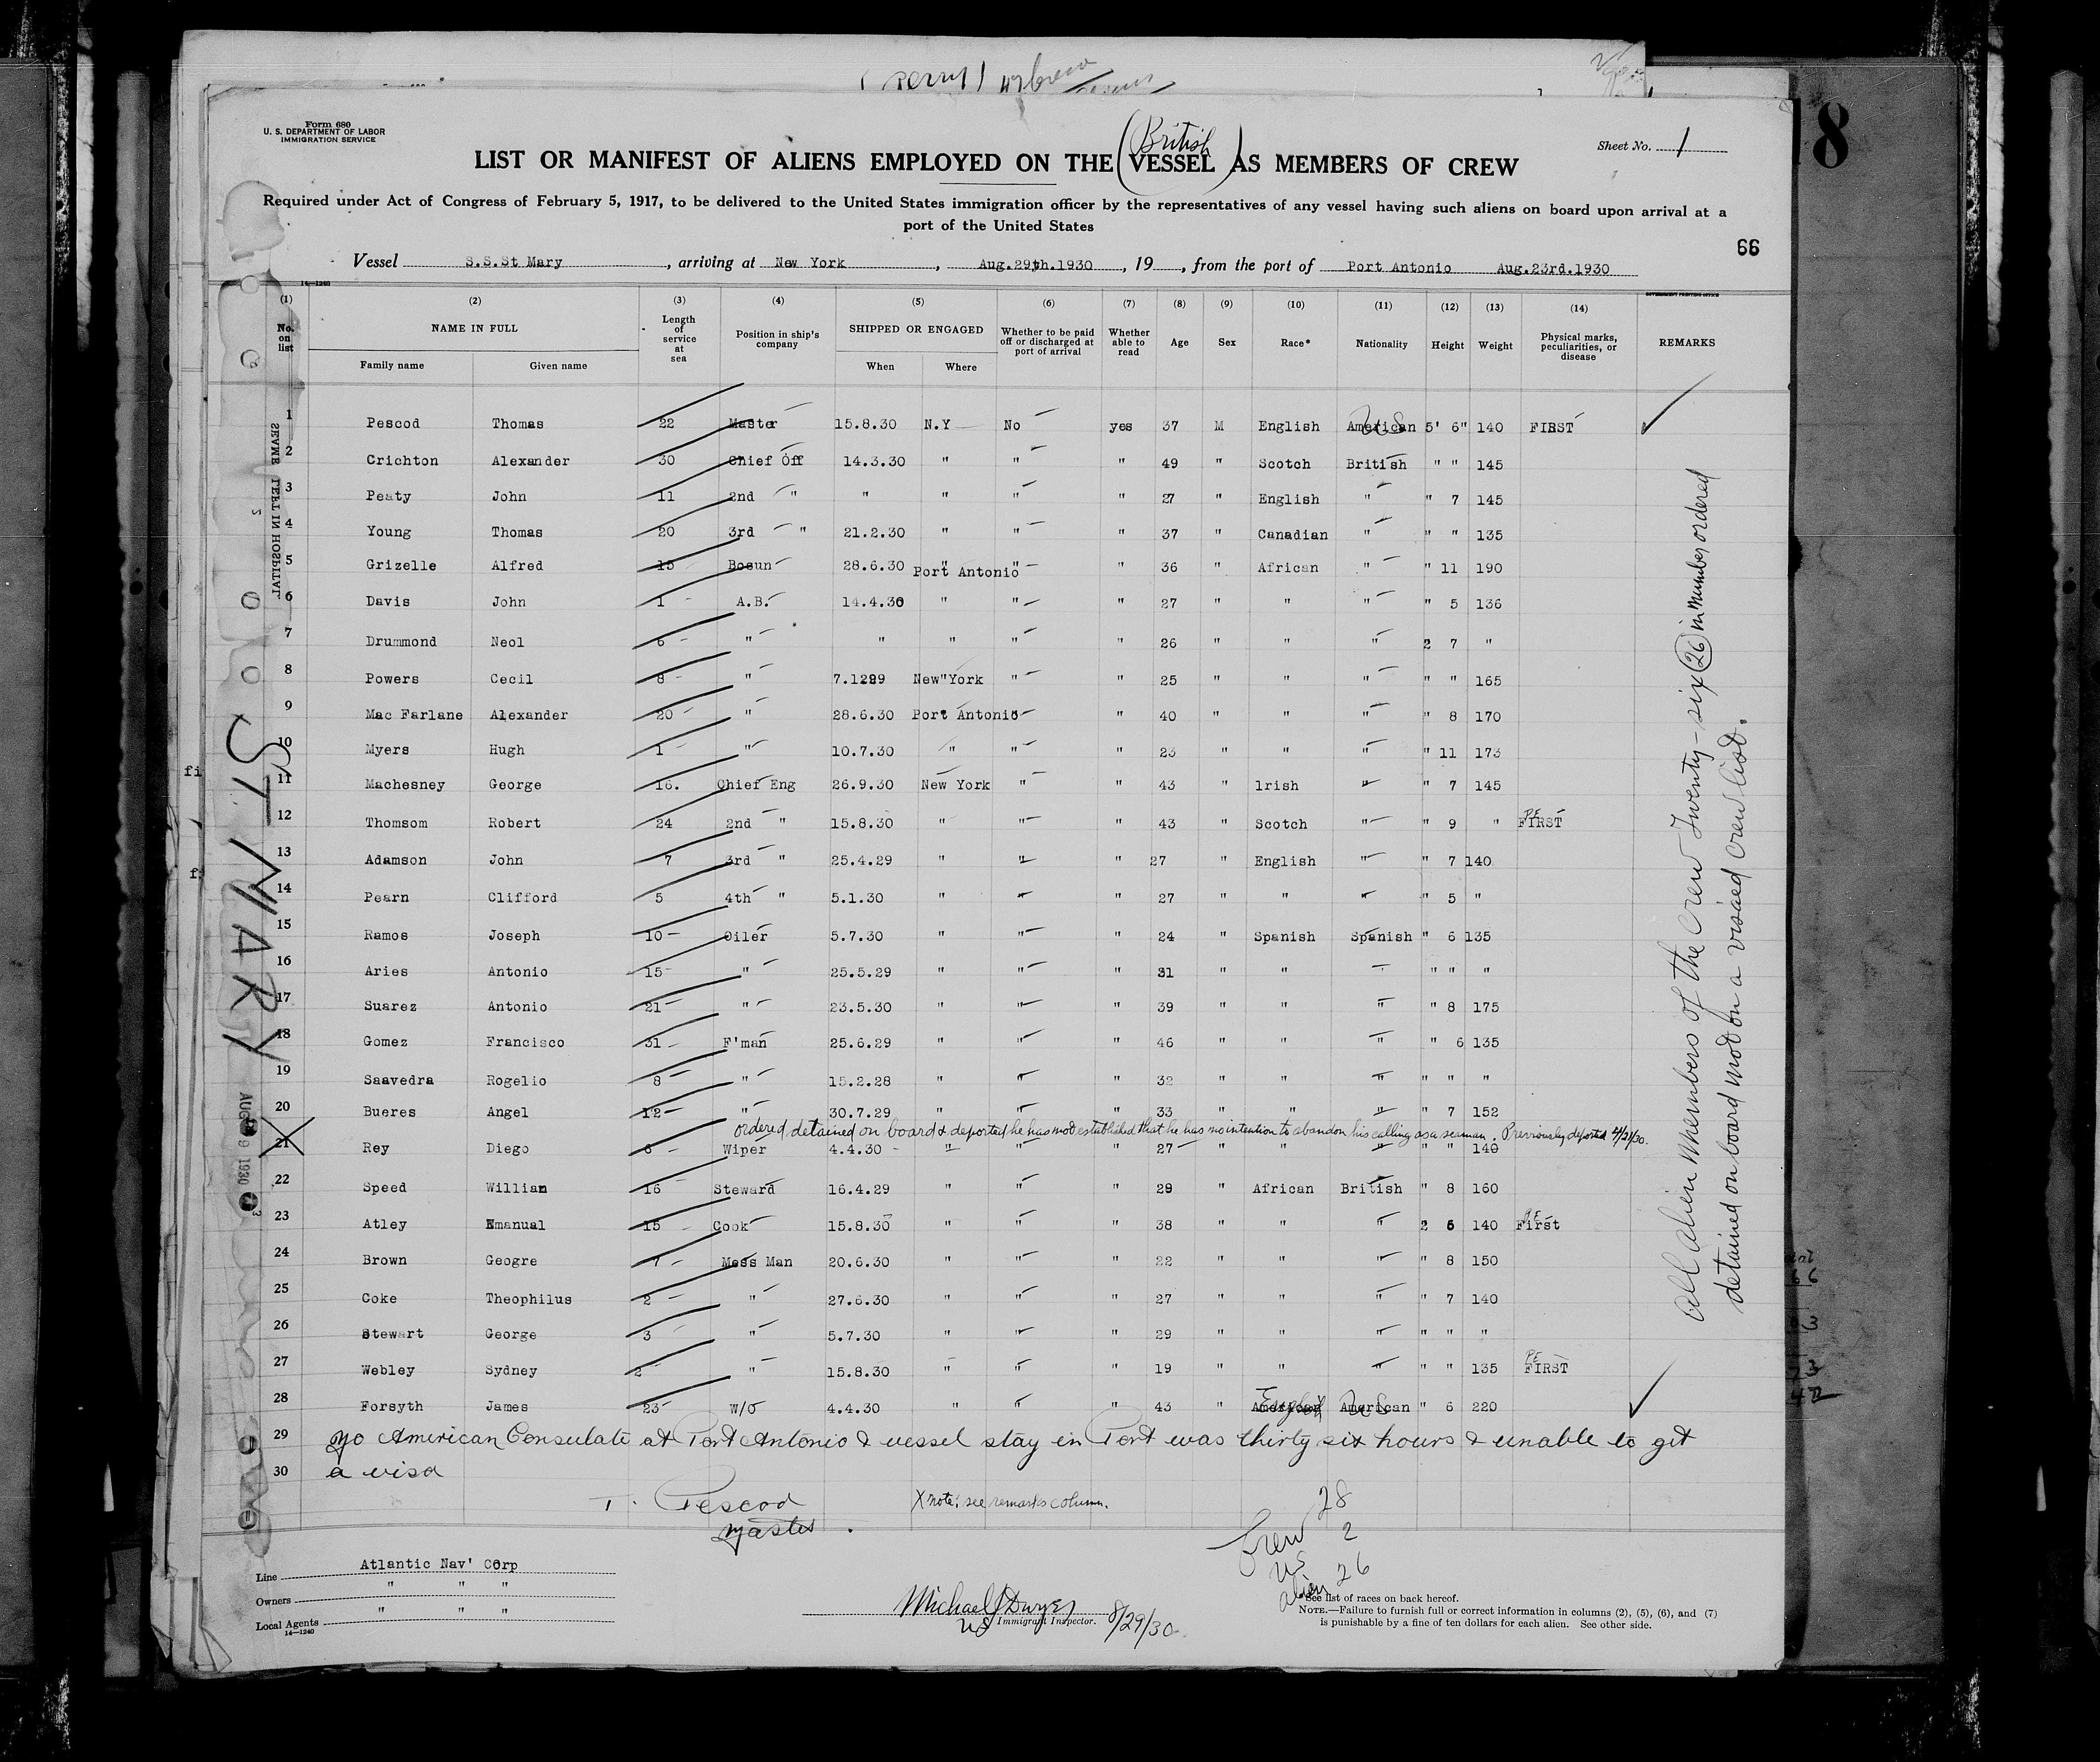 Form 680
U. S. DEPARTMENT OF LABOR
IMMIGRATION SERVICE
Sheet No. 1
(British)
LIST OR MANIFEST OF ALIENS EMPLOYED ON THE VESSEL AS MEMBERS OF CREW
Required under Act of Congress of February 5, 1917, to be delivered to the United States immigration officer by the representatives of any vessel having such aliens on board upon arrival at a
port of the United States
66
18
Vessel S.S.St Mary, arriving at New York, Aug.29th.1930, 19, from the port of Port Antonio Aug.23rd.1930
14—1240
(1) (2) (3) (4) (5) (6) (7) (8) (9) (10) (11) (12) (13) (14)
No. on list NAME IN FULL Family name Given name Length of service at sea Position in ship's company SHIPPED OR ENGAGED When Where Whether to be paid off or discharged at port of arrival Whether able to read Age Sex Race* Nationality Height Weight Physical marks, peculiarities, or disease REMARKS
1 Pescod Thomas 22 Master 15.8.30 N.Y No yes 37 M English American US 5' 6" 140 FIRST
2 Crichton Alexander 30 Chief Off 14.3.30 " " " 49 " Scotch British " " 145
3 Peaty John 11 2nd " " " " " 27 " English " " 7 145
4 Young Thomas 20 3rd " 21.2.30 " " " 37 " Canadian " " " 135
5 Grizelle Alfred 15 Bosun 28.6.30 Port Antonio " " 36 " African " " 11 190
6 Davis John 1 A.B. 14.4.30 " " " 27 " " " " 5 136
7 Drummond Neol 6 " " " " " 26 " " " 2 7 "
8 Powers Cecil 8 " 7.1229 New"York " " 25 " " " " " 165
9 Mac Farlane Alexander 20 " 28.6.30 Port Antonio " " 40 " " " " 8 170
10 Myers Hugh 1 " 10.7.30 " " " 23 " " " " 11 173
11 Machesney George 16. Chief Eng 26.9.30 New York " " 43 " lrish " " 7 145
12 Thomsom Robert 24 2nd " 15.8.30 " " " 43 " Scotch " " 9 " FIRST
13 Adamson John 7 3rd " 25.4.29 " " " 27 " English " " 7 140
14 Pearn Clifford 5 4th " 5.1.30 " " " 27 " " " " 5 "
15 Ramos Joseph 10 Oiler 5.7.30 " " " 24 " Spanish Spanish " 6 135
16 Aries Antonio 15 " 25.5.29 " " " 31 " " " " " "
17 Suarez Antonio 21 " 23.5.30 " " " 39 " " " " 8 175
18 Gomez Francisco 31 F'man 25.6.29 " " " 46 " " " " 6 135
19 Saavedra Rogelio 8 " 15.2.28 " " " 32 " " " " " "
20 Bueres Angel 12 " 30.7.29 " " " 33 " " " " 7 152
ordered detained on board & deported he has not established that he has no intention to abandon his calling as a seaman. Previously deported 4/21/30.
21 Rey Diego 6 Wiper 4.4.30 " " " 27 " " " " " 140
22 Speed Willian 16 Steward 16.4.29 " " " 29 " African British " 8 160
23 Atley Emanual 15 Cook 15.8.30 " " " 38 " " " 2 6 140 First
24 Brown Geogre 7 Mess Man 20.6.30 " " " 22 " " " " 8 150
25 Coke Theophilus 2 " 27.6.30 " " " 27 " " " " 7 140
26 Stewart George 3 " 5.7.30 " " " 29 " " " " " "
27 Webley Sydney 2 " 15.8.30 " " " 19 " " " " " 135 FIRST
28 Forsyth James 23 W/O 4.4.30 " " " 43 " American English American US " 6 220
29 No American Consulate at Port Antonio & vessel stay in Port was thirty six hours & unable to get
30 a visa
T. Pescod
Master.
X note: see remarks column.
28
Crew 2
US
alien 26
All alien members of the Crew Twenty-six (26) in number ordered
detained on board not on a visaed crew list.
SEAME LEFT IN HOSPITAL
ST MARY
Line Atlantic Nav' Corp
Owners " " "
Local Agents " " "
14—1240
Michael J Dwyer 8/29/30
US Immigrant Inspector.
*See list of races on back hereof.
NOTE.—Failure to furnish full or correct information in columns (2), (5), (6), and (7)
is punishable by a fine of ten dollars for each alien. See other side.